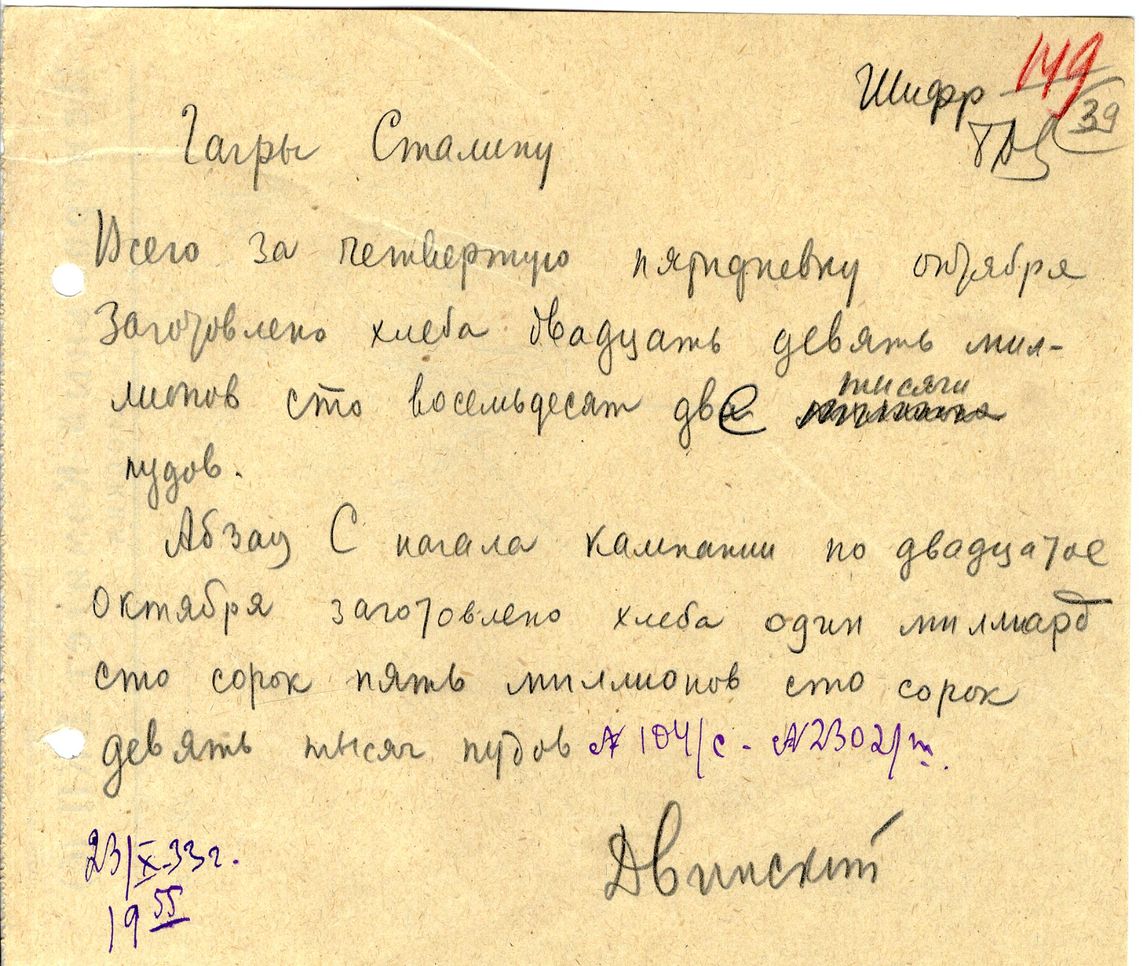 Шифр 149
39
Гагры Сталину
Всего за четвертую пятидневку октября
заготовлено хлеба двадцать девять мил-
лионов сто восемьдесят две тысячи
пудов.
Абзац С начала кампании по двадцатое
октября заготовлено хлеба один миллиард
сто сорок пять миллионов сто сорок
девять тысяч пудов № 104/с - № 2302/ш.
Двинский
23/X-33г.
19 55